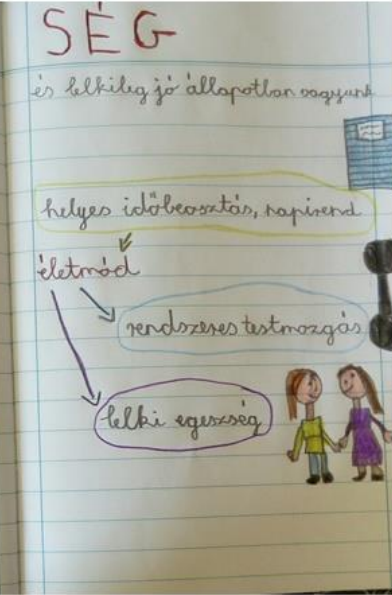 SÉG
és lelkileg jó állapotban vagyunk
helyes időbeosztás, napirend
életmód
rendszeres testmozgás
lelki egészség